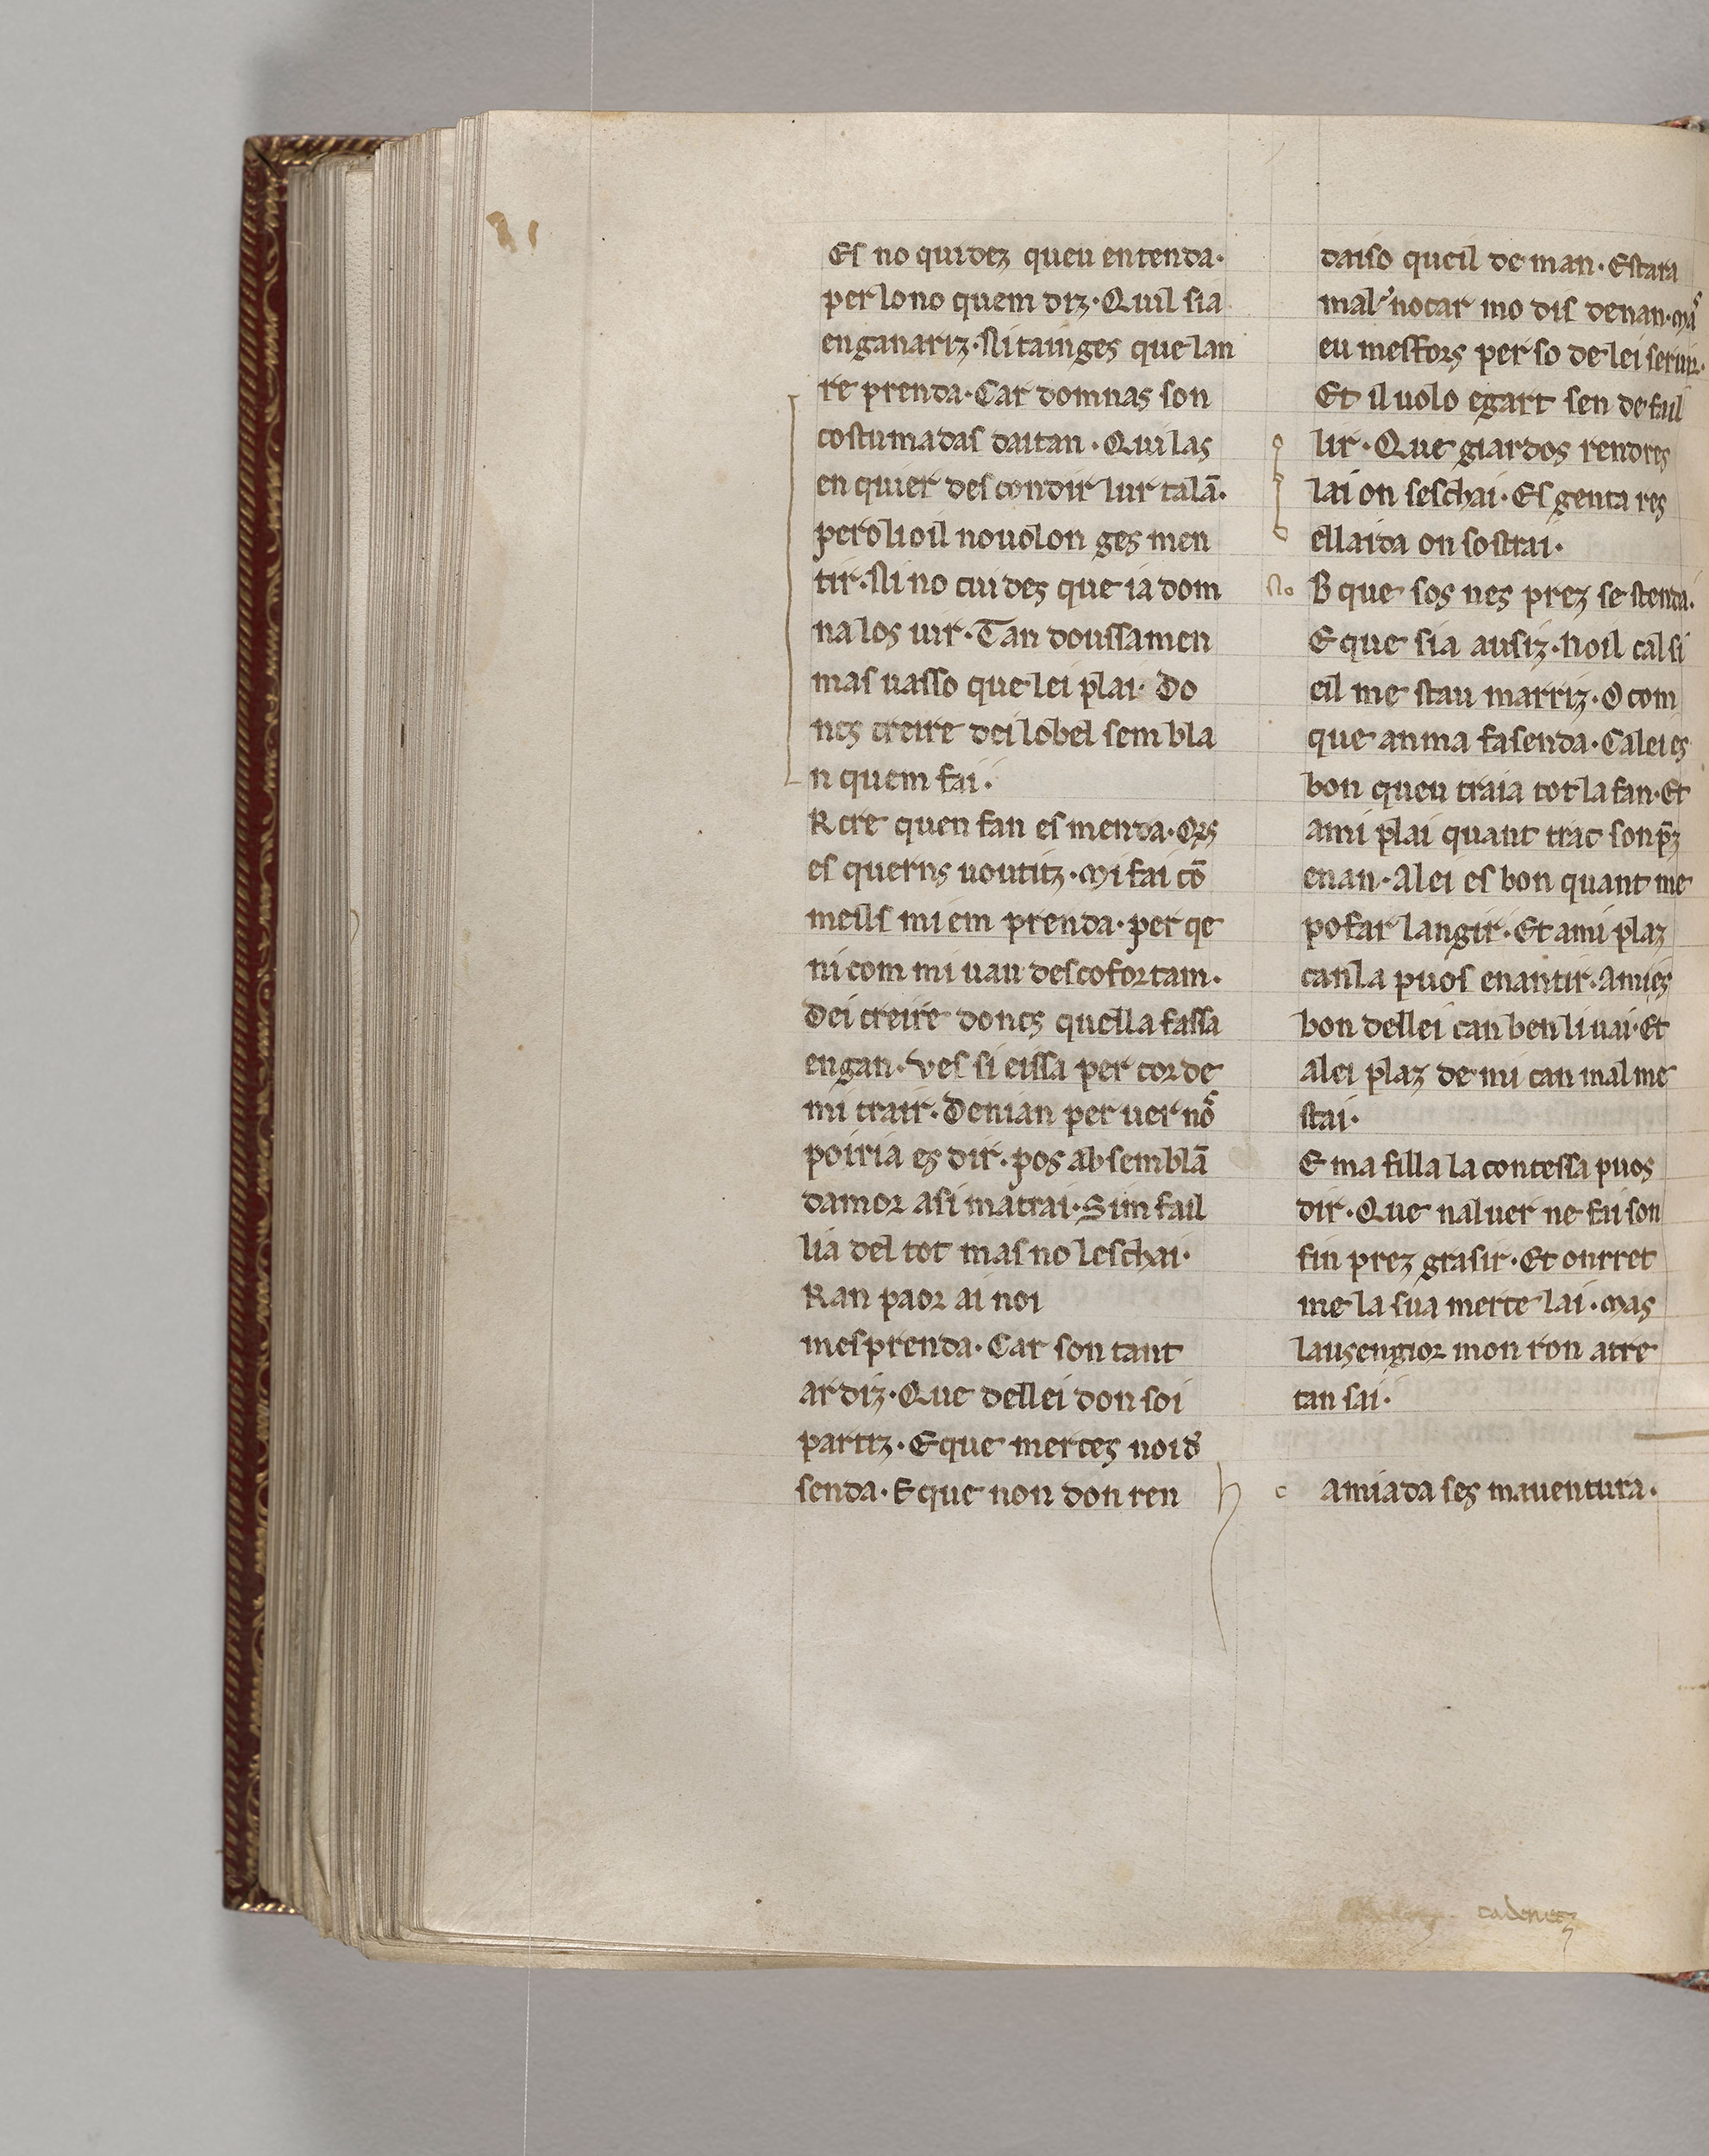 Es no quidez queu entenda·
per lo no quem diz· Quil sia
enganariz· Ni tainges que lan
re prenda· Car domnas son
costumadas daitan· Qui las
en quier des condir lur talā·
pero li oil no uolon ges men
tir· Ni no cuides que ia dom
na los uir· Tan doussamen
mas uasso que lei plai· Do
ncs creire dei lo bel sembla
n quem fai·
R cre quen fan es menda· Ors
es querns uoutitz· Mi fai cō
meils mi em prenda· per qe
ni com mi uau descofortam·
Dei creire doncs quella fassa
engan· Ves si eissa per cor de
mi trair· Denian per uer nos
poiria es dir· pos ab semblā
damor asi matrai· Sim fail
lia del tot mas no leschai·
R an paor ai noi
mesprenda· Car son tant
ardiz· Que dellei don soi
partiz· E que merces noi d
senda· E que non don ren
daiso queil deman· Estara
mal nocar mo dis denan· Mas
eu mesfors per so de lei seruir·
Et il uolo egart sen de fail
lir· Que giardos rendres
lai on seschai· Es genta res
ellaida on sostrai·
No
B que sos nes prez se stenda·
E que sia ausiz· Noil cal si
eil me stau marriz· O com
que an ma fasenda· Ca lei es
bon queu traia tot la fan· Et
ami plai quant trac son p̄z
enan· A lei es bon quant me
po far langir· Et ami plaz
can la puos enantir· Amies
bon dellei can ben li uai· Et
alei plaz de mi can mal me
stai·
E ma filla la contessa puos
dir· Que naluer ne fai son
fin prez grasir· Et onrret
me la sua merce lai· Mas
lausengior mon ron atre
tan sai·
c amia da ses mauentura·
cadenetz